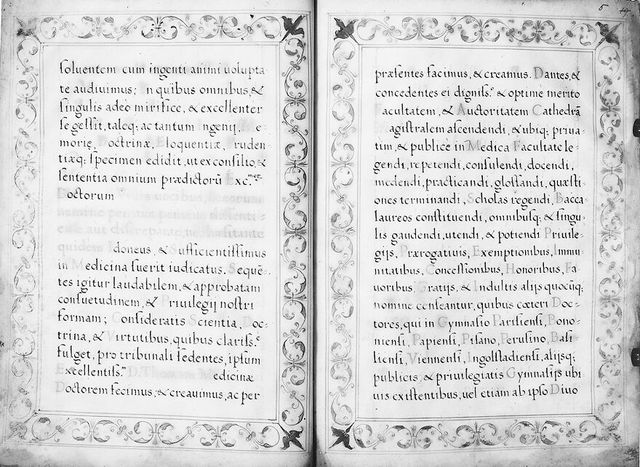 soluentem cum ingenti animi uolupta
te audiuimus; in quibus omnibus, &
singulis adeo mirifice, & excellenter
se gessit, taleq; ac tantum ingenij, Me-
morię, Doctrinæ, Eloquentiæ, Pruden-
tiæq; specimen edidit, ut ex consilio, &
sententia omnium prædictorũ Exc.
Doctorum
Idoneus, & Sufficientissimus
in Medicina fuerit iudicatus. Seque-
tes igitur laudabilem, & approbatam
consuetudinem, & Priuilegij nostri
formam; Consideratis Scientia, Doc-
trina, & Virtutibus, quibus clariss.e
fulget, pro tribunali sedentes, ipsum
Excellentiss. D.
Medicinæ
Doctorem fecimus, & creauimus, ac per
5
præsentes facimus, & creamus. Dantes, &
concedentes ei digniss.o & optime merito
Facultatem, & Auctoritatem Cathedrã
Magistralem ascendendi, & ubiq; priua-
tim, & publice in Medica Facultate le-
gendi, repetendi, consulendi, docendi,
medendi, practicandi, glossandi, quæsti-
ones terminandi, Scholas regendi, Bacca-
laureos constituendi, omnibusq; & singu-
lis gaudendi, utendi, & potiendi Priuile-
gijs, Prærogatiuis, Exemptionibus, Immu-
nitatibus, Concessionibus, Honoribus, Fa-
uoribus, Gratijs, & Indultis alijs quocũq;
nomine censeantur, quibus cæteri Doc-
tores, qui in Gymnasio Parisiensi, Bono-
niensi, Papiensi, Pisano, Perusino, Basi-
liensi, Viennensi, Ingolstadiensi, alijsq;
publicis, & priuilegiatis Gymnasijs ubi
uis existentibus, uel etiam ab ipso Diuo